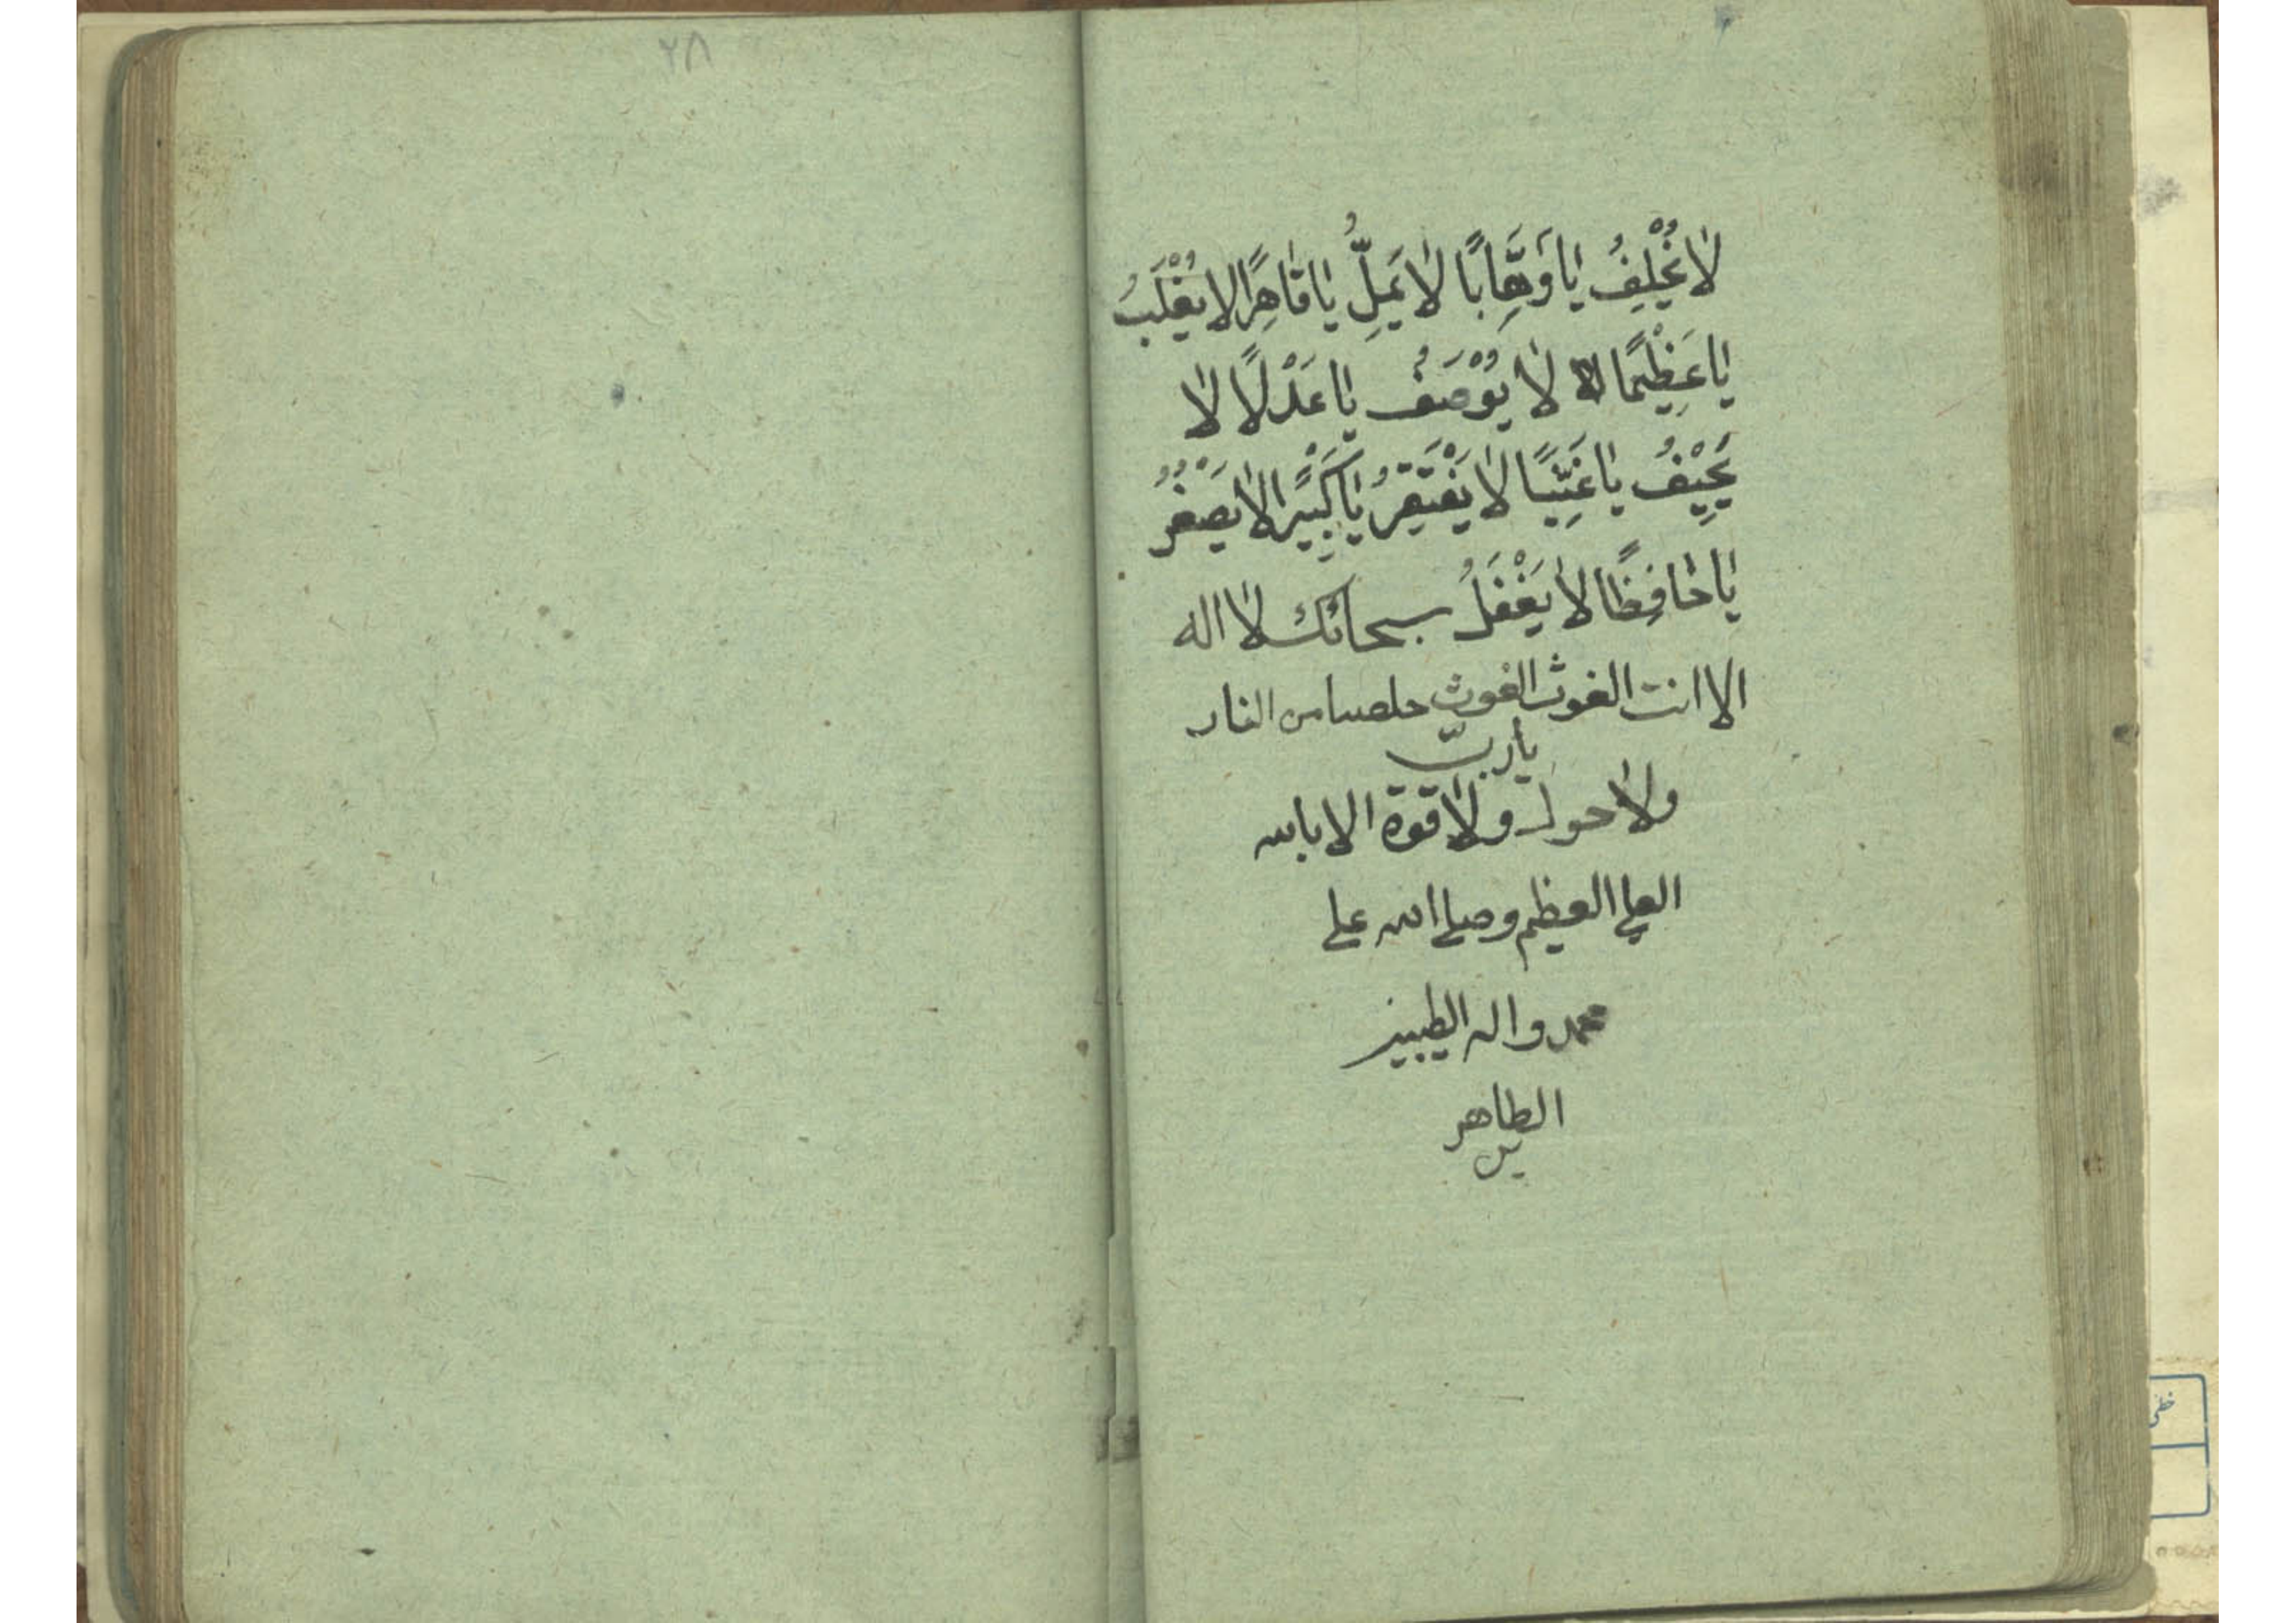 لا يُخْلِفُ يا وَهَّابًا لا يَمِلُّ يا قاهِرًا لا يُغْلَبُ
يا عَظِيْمًا لا لا يُوْصَفُ يا عَدْلًا لا
يَحِيْفُ يا غَنِيًّا لا يَفْتَقِرُ يا كَبِيْرًا لا يَصْغُرُ
يا حافِظًا لا يَغْفَلُ سبحانك لا اله
الا انت الغوث الغوث خلصنا من النار
يا ربّ
ولا حول ولا قوة الا بالله
العلي العظيم وصلى الله على
محمد واله الطيبين
الطاهر
ين
٢٨